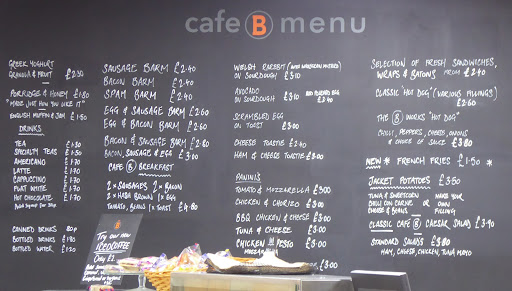 cafe B menu
GREEK YOGHURT
GRANOLA & FRUIT £2.30
PORRIDGE & HONEY £1.80
"MADE JUST HOW YOU LIKE IT"
ENGLISH MUFFIN & JAM £1.50
DRINKS
TEA £1.20
SPECIALITY TEAS £1.50
AMERICANO £1.70
LATTE £1.70
CAPPUCCINO £1.70
FLAT WHITE £1.70
HOT CHOCOLATE £1.70
CANNED DRINKS 80p
BOTTLED DRINKS £1.20
BOTTLED WATER £1.20
SAUSAGE BARM £2.40
BACON BARM £2.40
SPAM BARM £2.40
EGG & SAUSAGE BARM £2.60
EGG & BACON BARM £2.60
BACON & SAUSAGE BARM £2.80
BACON, SAUSAGE & EGG £3.00
CAFE B BREAKFAST
2 x SAUSAGES 2 x BACON
2 x HASH BROWN 1 x EGG
TOMATO, BEANS 1 x TOAST £4.50
Try our new
ICED COFFEE
Only £2.
WELSH RAREBIT
ON SOURDOUGH £3.10
AVOCADO ADD POACHED EGG
ON SOURDOUGH £3.10 £2.40
SCRAMBLED EGG
ON TOAST £3.00
CHEESE TOASTIE £2.40
HAM & CHEESE TOASTIE £3.00
PANINIS
TOMATO & MOZZARELLA £3.00
CHICKEN & CHORIZO £3.00
BBQ CHICKEN & CHEESE £3.00
TUNA & CHEESE £3.00
CHICKEN & PESTO £3.00
SELECTION OF FRESH SANDWICHES,
WRAPS & BATONS FROM £2.40
CLASSIC "HOT DOG" (VARIOUS FILLINGS)
£2.60
THE B WORKS "HOT DOG"
CHILLI, PEPPERS, CHEESE, ONIONS
& CHOICE OF SAUCE £3.80
NEW * FRENCH FRIES £1.50 *
JACKET POTATOES £3.50
TUNA & SWEETCORN MAKE YOUR
CHILLI CON CARNE OR OWN
CHEESE & BEANS FILLING
CLASSIC CAFE B CAESAR SALAD £3.90
STANDARD SALADS £3.80
HAM, CHEESE, CHICKEN, TUNA MAYO